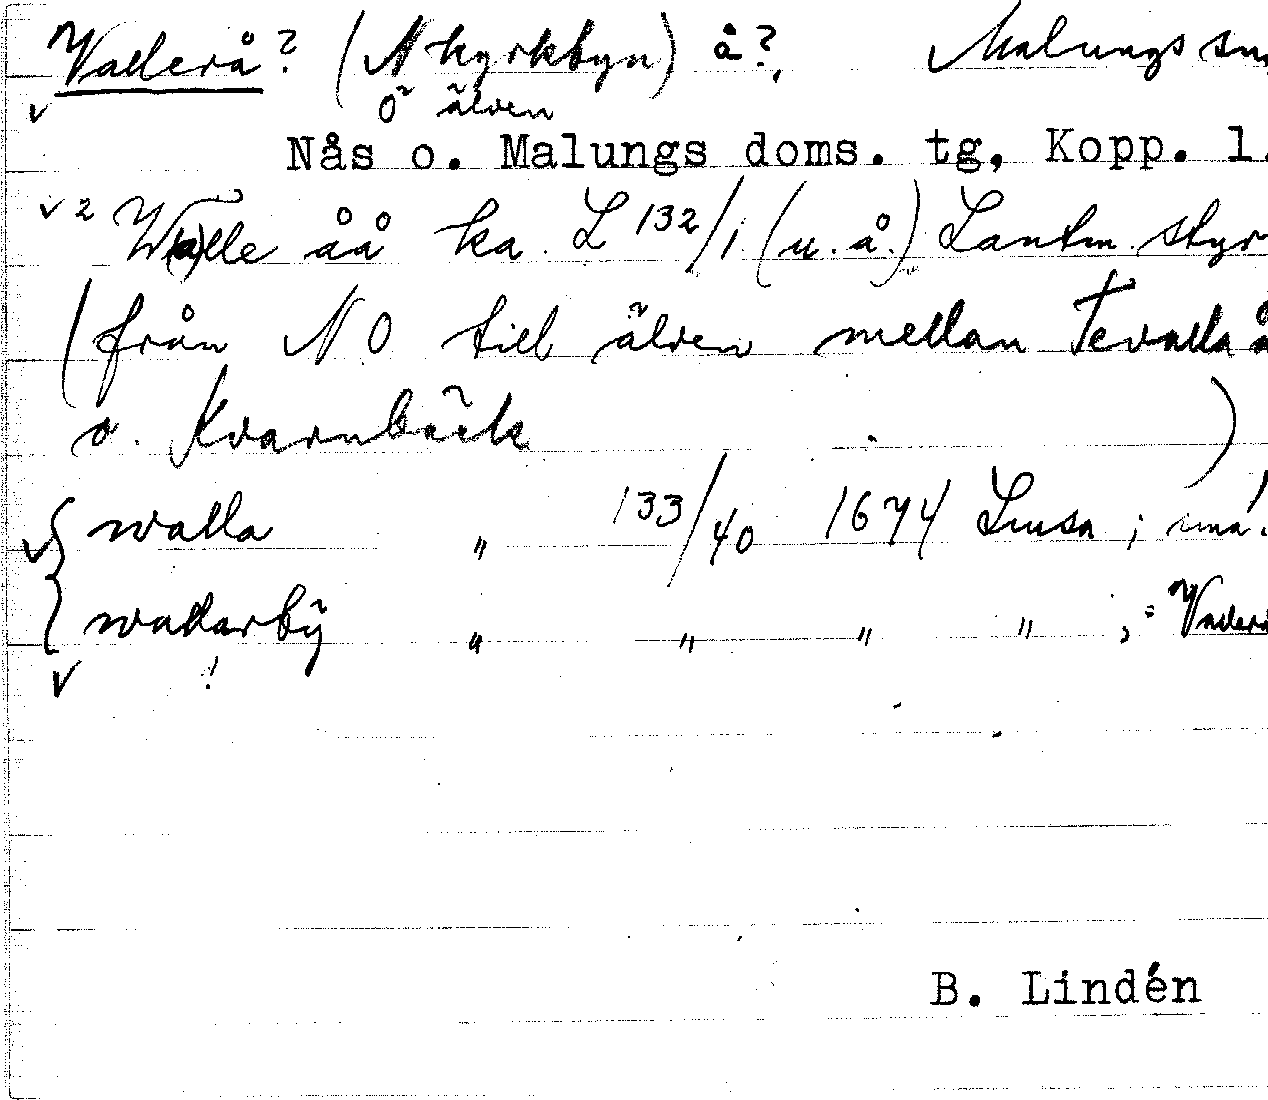 Vallerå? (N kyrkbyn) å?, Malungs sn
Ö älven
Nås o. Malungs doms. tg, Kopp. l.
√ 2 W(a)lle åå ka. L 132/1 (u.å.) Lantm. styr
(från NO till älven mellan Tevalla å
o. Kvarnbäck )
walla " 133/40 1674 Lmsa; små.
wallarbÿ " " " " , = Vallerå
!
B. Lindén